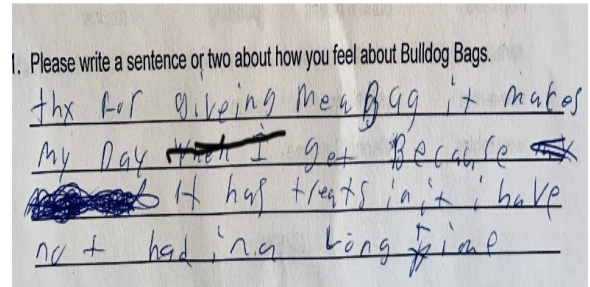 1. Please write a sentence or two about how you feel about Bulldog Bags.
thx for giveing me a Bag it makes
My Day when I get Because
It has treats in it i have
not had in a Long time